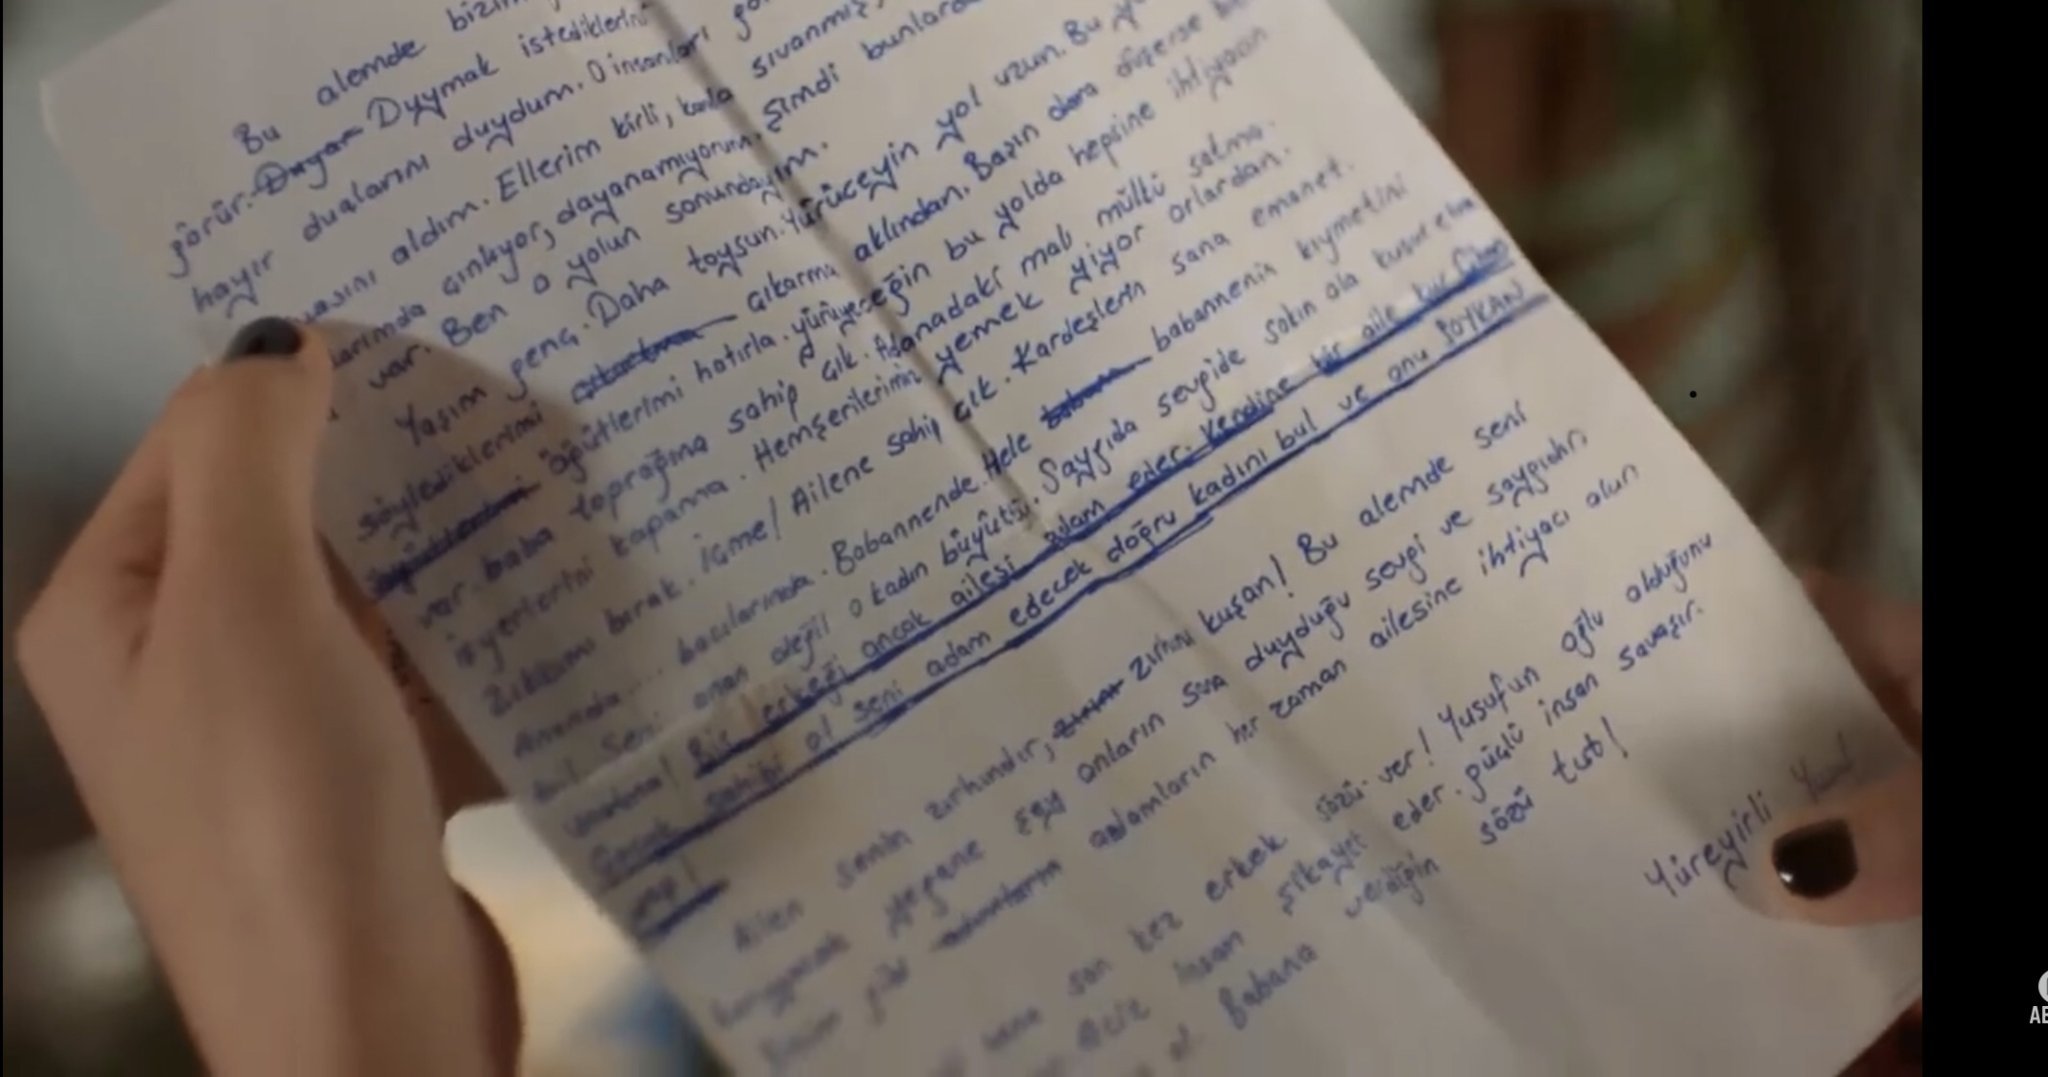 Bu alemde
görür. Duyar Duymak istediklerini
hayır dualarını duydum. O insanları
aldım. Ellerim kirli, kanla sıvanmış,
çınlıyor, dayanamıyorum. Şimdi bunlardan
var. Ben o yolun sonundayım.
Yaşım genç. Daha toysun. Yürüceyin yol uzun. Bu
söylediklerimi çıkarma aklından. Başın dara düşerse
öğütlerimi hatırla. yürüyeceğin bu yolda hepsine ihtiyacın
var. baba toprağına sahip çık. Adanadaki malı mülkü satma.
işyerlerini kapama. Hemşerilerimin yemek yiyor orlardan.
Zıkkımı bırak. İçme! Ailene sahip çık. Kardeşlerin sana emanet.
bacılarımda. Babannende. Hele babannenin kıymetini
bil. Seni anan değil o kadın büyüttü. Saygıda sevgide sakın ola kusur etme
unutma! Bir erkeği ancak ailesi adam eder. Kendine bir aile kur
sahibi ol seni adam edecek doğru kadını bul ve onu SOYKAN
yap!
Ailen senin zırhındır, zırhını kuşan! Bu alemde seni
koruyacak yegane şey onların sana duyduğu sevgi ve saygıdır.
gibi adamların adamların her zaman ailesine ihtiyacı olur
bana son kez erkek sözü ver! Yusufun oğlu olduğunu
Aciz insan şikayet eder. güçlü insan savaşır.
Babana verdiğin sözü tut!
Yüreyirli